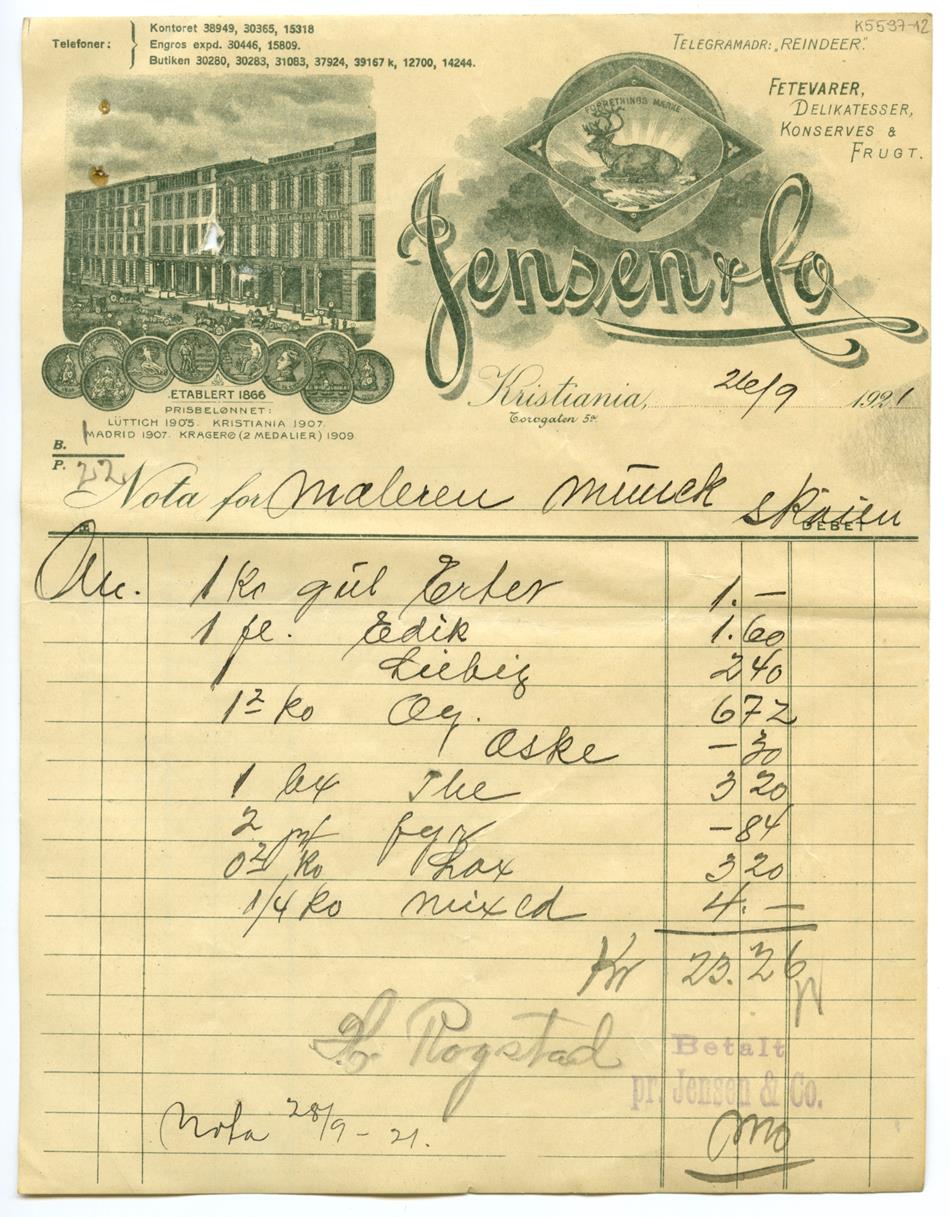 K5597-12
Telefoner:
Kontoret 38949, 30365, 15318
Engros expd. 30446, 15809.
Butiken 30280, 30283, 31083, 37924, 39167 k, 12700, 14244.
TELEGRAMADR: „REINDEER".
FETEVARER,
DELIKATESSER,
KONSERVES &
FRUGT.
FORRETNINGS MÆRKE
Jensen & Co
ETABLERT 1866
PRISBELØNNET:
LÜTTICH 1905. KRISTIANIA 1907.
MADRID 1907. KRAGERØ (2 MEDALIER) 1909
Kristiania, 26/9 1921
Torvgaten 5a
B. 1
P. 22
Nota for Maleren Münck Skøien
DEBET
1 Ko gül Erter 1.—
1 fl. Edik 1.60
1 Liebig 2 40
1² ko Og. 6 72
1 æske – 30
1 bx The 3 20
2 fyr – 84
0²⁰ ko Lax 3 20
1/4 ko mixed 4. —
Kr 23.26
Rogstad
Betalt
pr. Jensen & Co.
Nota 28/9 – 21.